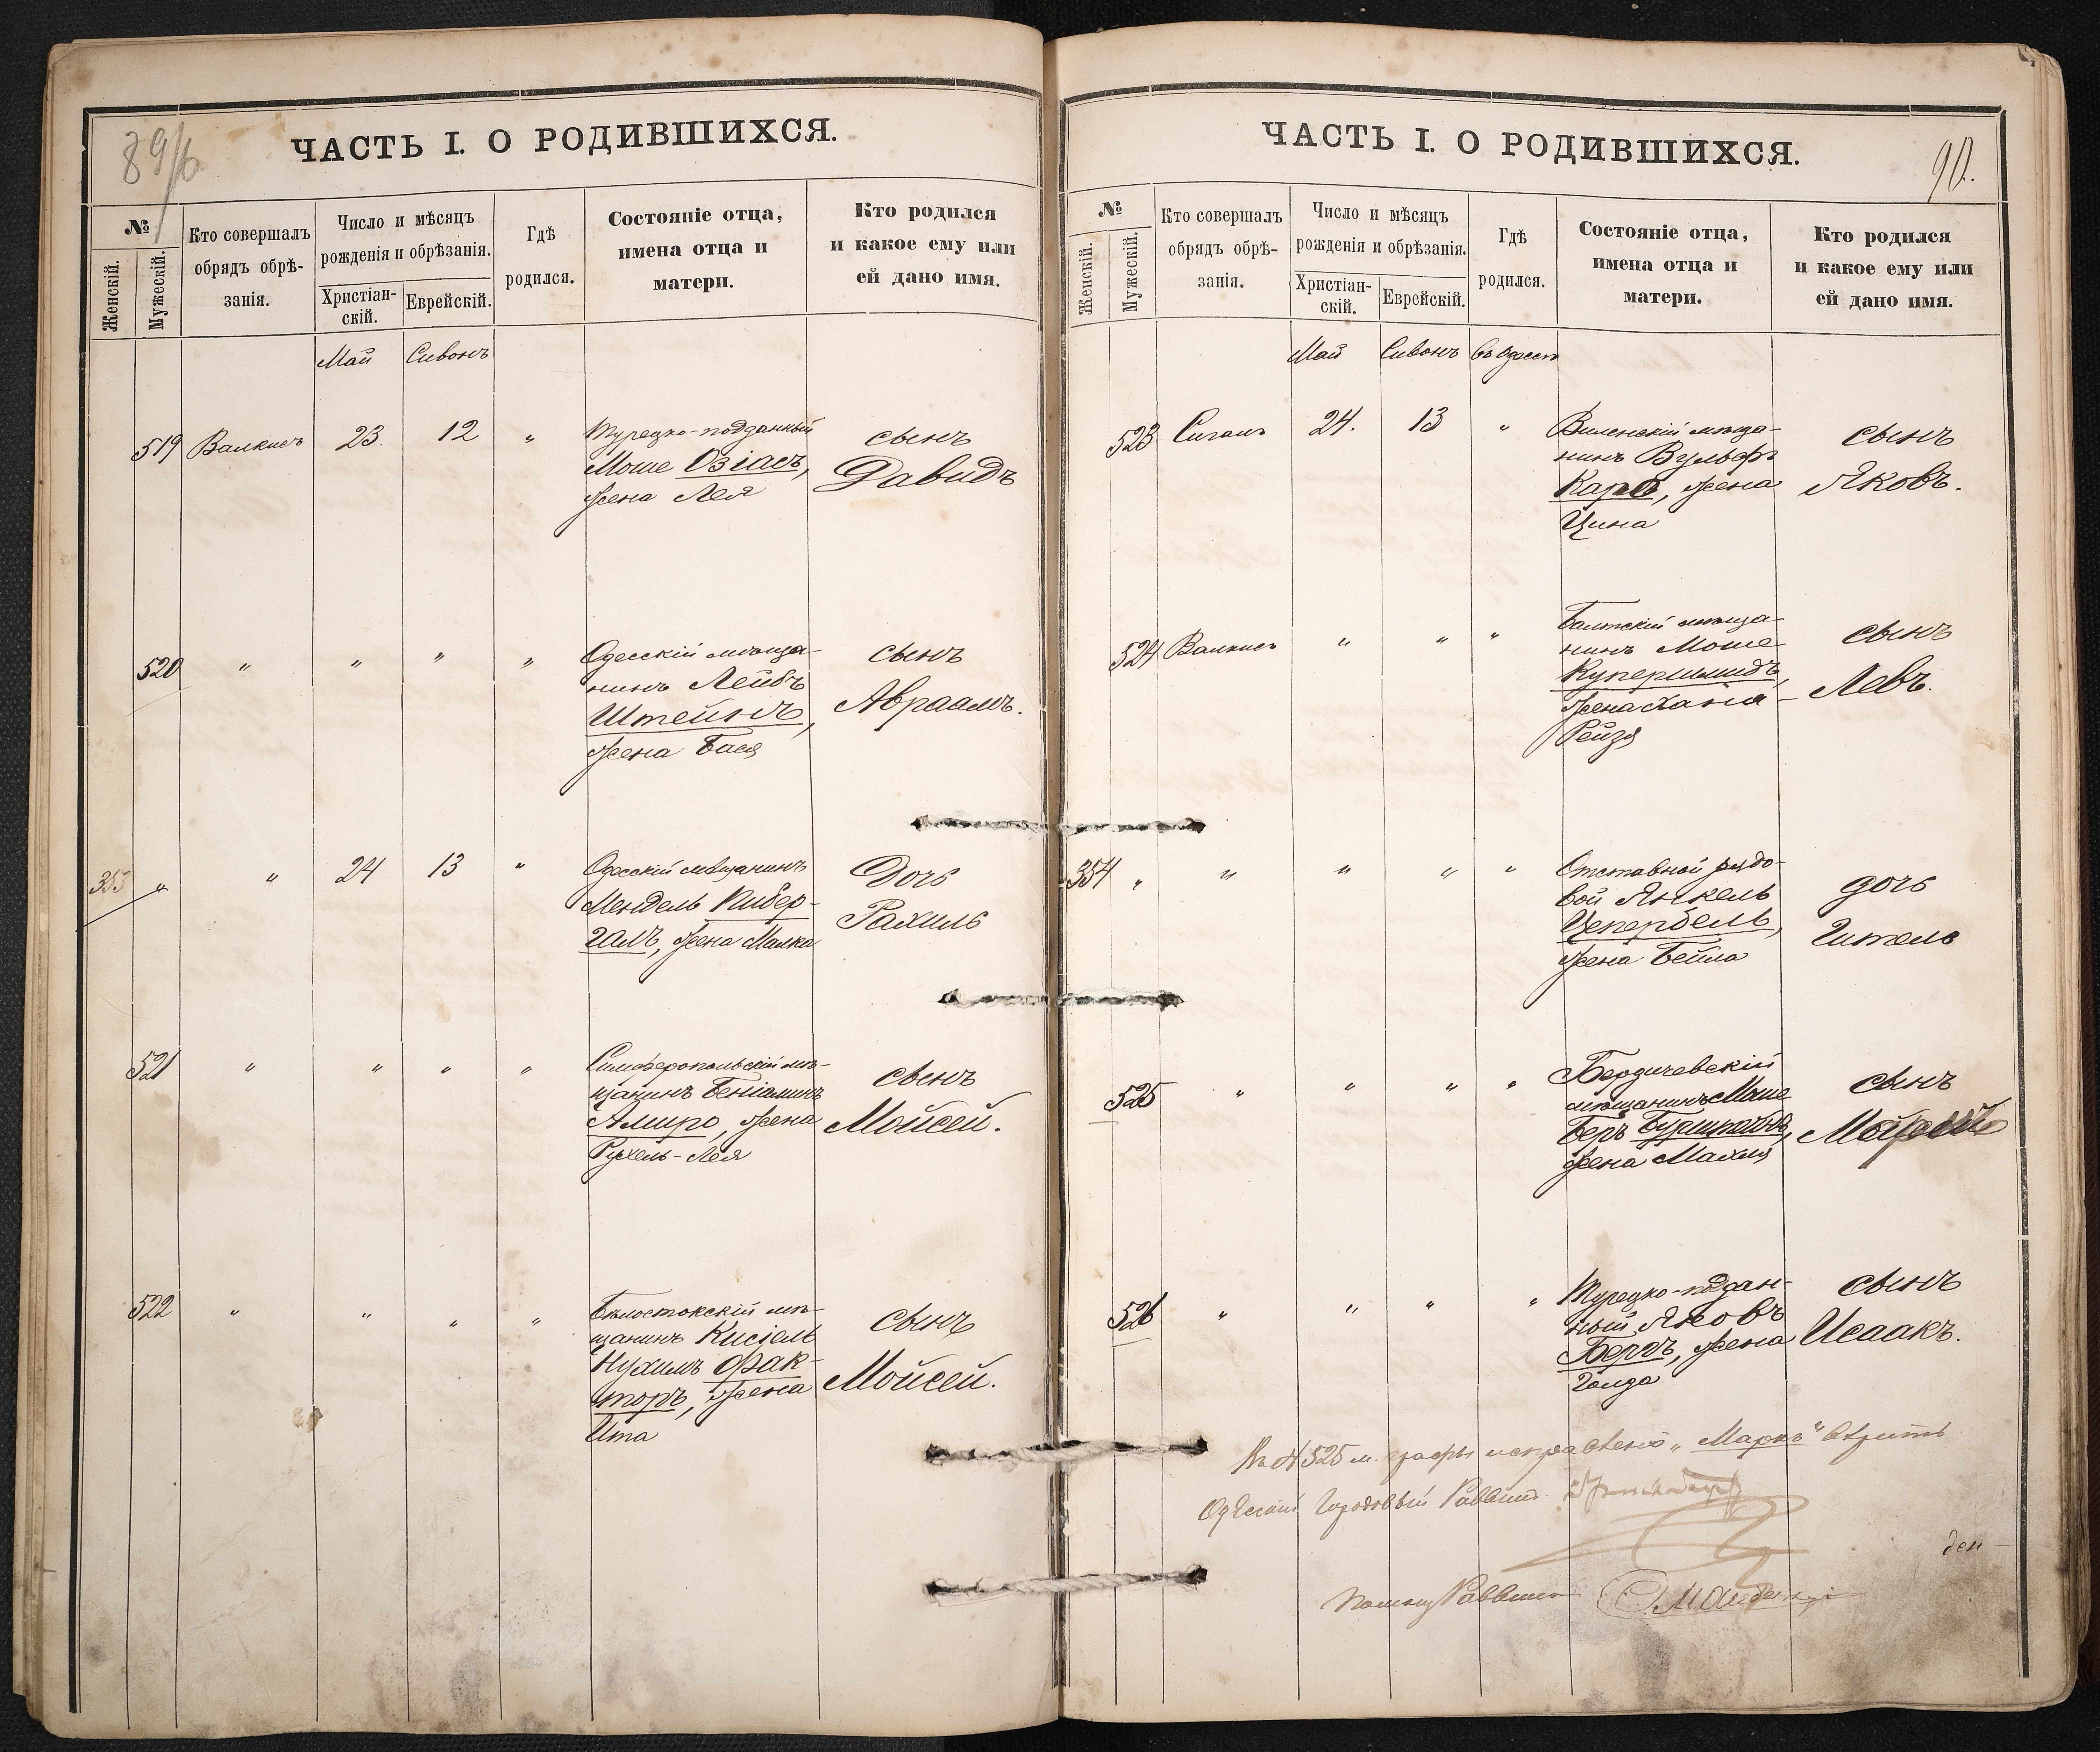 89/б
ЧАСТЬ I. О РОДИВШИХСЯ.
№
Женскій.
Мужескій.
Кто совершалъ
обрядъ обрѣ-
занія.
Число и мѣсяцъ
рожденія и обрѣзанія.
Христіан-
скій.
Еврейскій.
Гдѣ
родился.
Состояніе отца,
имена отца и
матери.
Кто родился
и какое ему или
ей дано имя.
Май Сивонъ
519 Валкисъ 23. 12 " Турецко-подданный
Моше Озіасъ,
жена Лея
сынъ
Давидъ
520 " " " " Одесскій мѣща-
нинъ Лейбъ
Штейнъ,
жена Бася
сынъ
Авраамъ.
353 " " 24 13 " Одесскій мѣщанинъ
Мендель Кибер-
галъ, жена Малка
Дочь
Рахиль
521 " " " " Симферопольскій мѣ-
щанинъ Беніаминъ
Амиро, жена
Рухель-Лея
сынъ
Мойсей.
522 " " " " Бѣлостокскій мѣ-
щанинъ Кисіель
Нухимъ Фак-
торъ, жена
Ита
сынъ
Мойсей.
90.
ЧАСТЬ I. О РОДИВШИХСЯ.
№
Женскій.
Мужескій.
Кто совершалъ
обрядъ обрѣ-
занія.
Число и мѣсяцъ
рожденія и обрѣзанія.
Христіан-
скій.
Еврейскій.
Гдѣ
родился.
Состояніе отца,
имена отца и
матери.
Кто родился
и какое ему или
ей дано имя.
Май Сивонъ въ Одессѣ
523 Сигалъ 24. 13 " Виленскій мѣща-
нинъ Вульфъ
Карб, жена
Цина
сынъ
Яковъ.
524 Валкисъ " " " Балтскій мѣща-
нинъ Моше
Купершмидъ,
жена Хания-
Рейзя
сынъ
Левъ.
354 " " " " " Отставной рядо-
вой Янкель
Цепербель,
жена Бейла
дочь
Гитель
525 " " " " Бердичевскій
мѣщанинъ Моше
Беръ
жена Махля
сынъ
526 " " " " Турецко-поддан-
ный Яковъ
Бергъ, жена
Голда
сынъ
Исаакъ.
Въ № 525 м. графы исправлено "Маркъ" вѣрить
Одесскій Городовый Раввинъ
Помощ Раввина